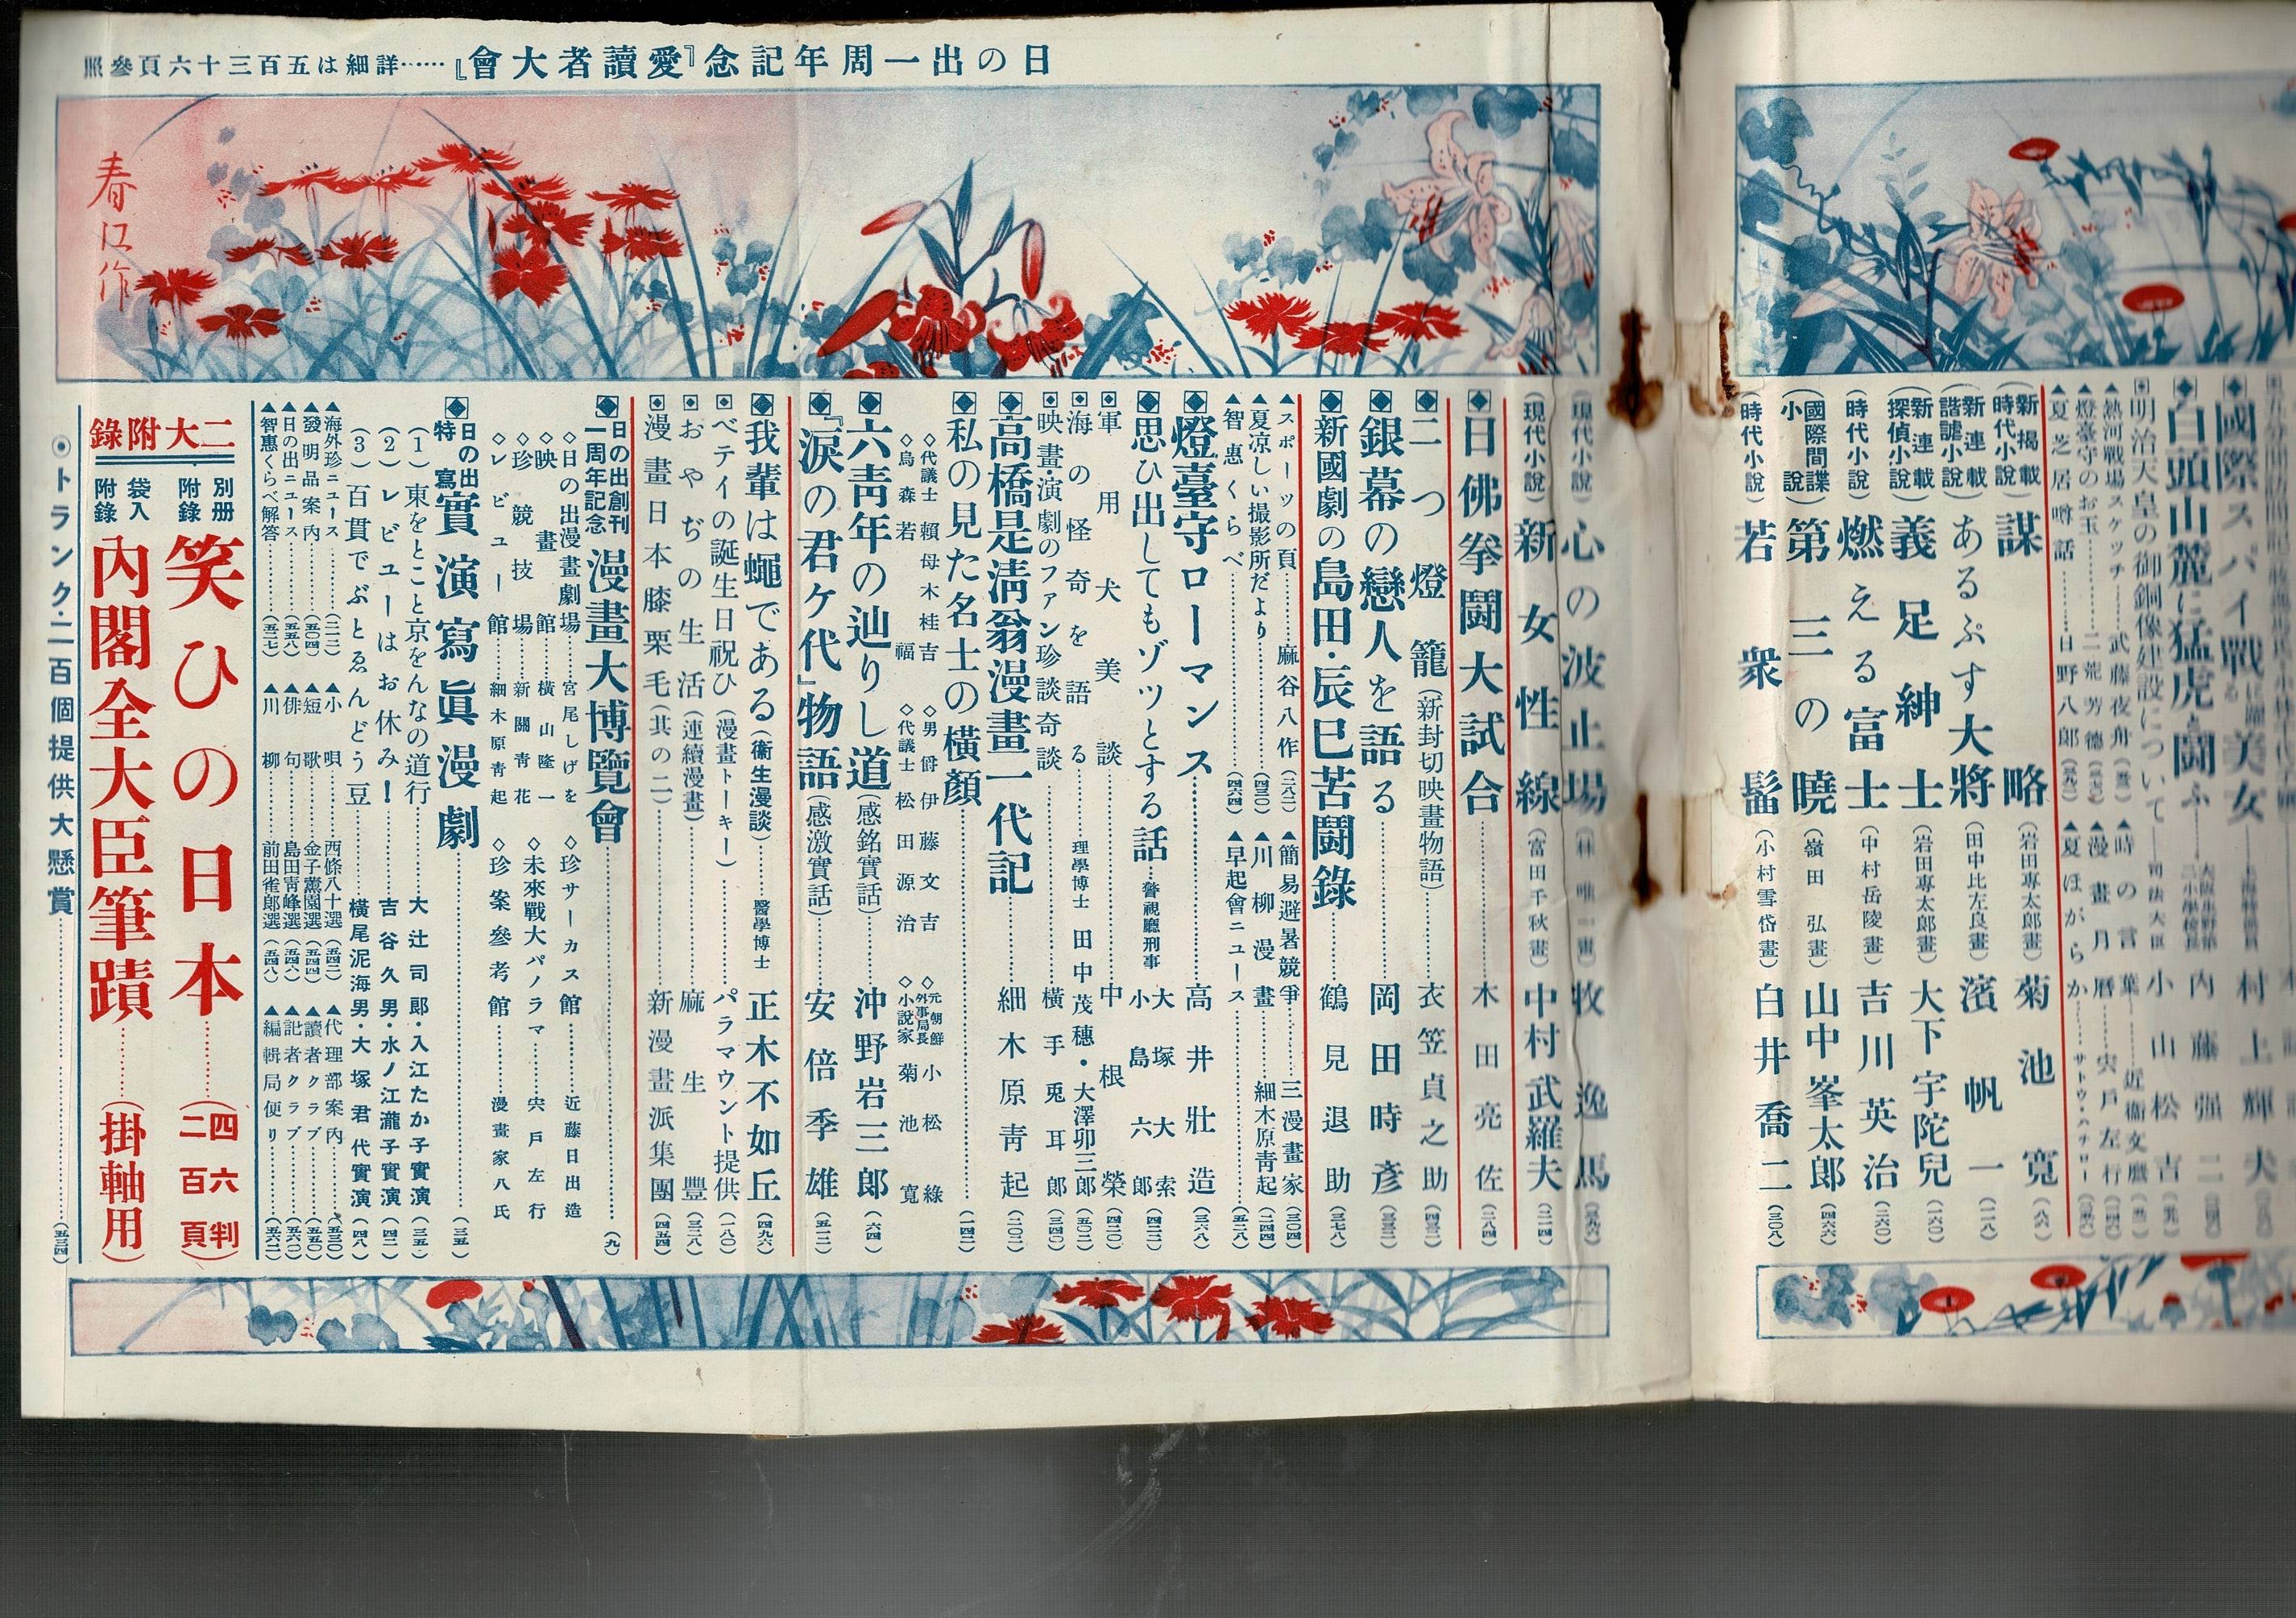 日の出一周年記念『愛讀者大會』……詳細は五百三十六頁參照
春江作
國際スパイ戰に躍る美女
村上輝夫
白頭山麓に猛虎と鬪ふ
内藤强二
明治天皇の御銅像建設について
司法大臣 小山松吉
▲熱河戰場スケッチ……武藤夜舟
▲時の言葉……近衞文麿
▲燈臺守のお玉……二荒芳德
▲漫畫月曆……宍戸左行
▲夏芝居噂話……日野八郎
▲夏ほがらか……サトウ・ハチロー
新掲載 時代小說 謀略(岩田專太郎畫)菊池寬(八六)
新連載 諧謔小說 あるぷす大將(田中比左良畫)濱帆一(一一八)
新連載 探偵小說 義足紳士(岩田專太郎畫)大下宇陀兒(一六〇)
時代小說 燃える富士(中村岳陵畫)吉川英治(二六〇)
國際間諜小說 第三の曉(嶺田弘畫)山中峯太郎(四六六)
(時代小說)若衆髷(小村雪岱畫)白井喬二(三〇八)
(現代小說)心の波止場(林唯一畫)牧逸馬
(現代小說)新女性線(富田千秋畫)中村武羅夫(二一四)
日佛拳鬪大試合……木田亮佐(二八四)
二つ燈籠(新封切映畫物語)……衣笠貞之助(四三二)
銀幕の戀人を語る……岡田時彥(三三二)
新國劇の島田・辰巳苦鬪錄……鶴見退助(三七八)
▲スポーツの頁……麻谷八作(二八二)
▲簡易避暑競爭……三漫畫家(三〇四)
▲夏凉しい撮影所だより……(四三〇)
▲川柳漫畫……細木原靑起(二四四)
▲智惠くらべ……(四六四)
▲早起會ニュース……(五二八)
燈臺守ローマンス……高井壯造(三六八)
思ひ出してもゾッとする話…警視廳刑事 大塚大索 小島六郎(四二二)
軍用犬美談……中根榮(四二〇)
海の怪奇を語る……理學博士 田中茂穗・大澤卯三郎(五〇二)
映畫・演劇のファン珍談奇談……橫手兎耳郎(三四〇)
高橋是淸翁漫畫一代記……細木原靑起(二〇二)
私の見た名士の橫顏……(一四二)
◇代議士 賴母木桂吉
◇男爵 伊藤文吉
◇元朝鮮外事局長 小松綠
◇烏森若福
◇代議士 松田源治
◇小說家 菊池寬
六靑年の辿りし道(感銘實話)……沖野岩三郎(六四)
『淚の君ケ代』物語(感激實話)……安倍季雄(五一二)
我輩は蠅である(衞生漫談)……醫學博士 正木不如丘(四九六)
ベテイの誕生日祝ひ(漫畫トーキー)……パラマウント提供(一八〇)
おやぢの生活(連續漫畫)……麻生豐(三二八)
漫畫日本膝栗毛(其の二)……新漫畫派集團(四五四)
日の出創刊一周年記念 漫畫大博覽會……(九)
◇日の出漫畫劇場……宮尾しげを
◇珍サーカス館……近藤日出造
◇映畫館……橫山隆一
◇未來戰大パノラマ……宍戸左行
◇珍競技場……新關靑花
◇珍案參考館……漫畫家八氏
◇レビュー館……細木原靑起
日の出特寫 實演寫眞漫劇……(三五)
(1)東をとこと京をんなの道行……大辻司郎・入江たか子實演(三五)
(2)レビューはお休み!……吉谷久男・水ノ江瀧子實演(四二)
(3)百貫でぶとゑんどう豆……橫尾泥海男・大塚君代實演(四八)
▲海外珍ニュース……(二一二)
▲小唄 西條八十選(五四二)
▲代理部案內……(五三〇)
▲發明品案內……(五〇四)
▲短歌 金子薰園選(五四四)
▲讀者クラブ……(五五〇)
▲日の出ニュース……(五五八)
▲俳句 島田靑峰選(五四六)
▲記者クラブ……(五六〇)
▲智惠くらべ解答……(五三七)
▲川柳 前田雀郎選(五四八)
▲編輯局便り……(五六二)
二大附錄
別册附錄 笑ひの日本……(四六判二百頁)
袋入附錄 內閣全大臣筆蹟……(掛軸用)
◉トランク二百個提供大懸賞……(五三四)